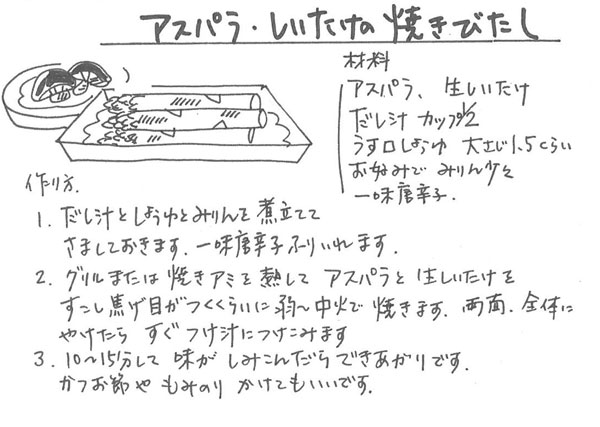 アスパラ・しいたけの焼きびたし
材料
アスパラ、生しいたけ
だし汁 カップ1/2
うす口しょうゆ 大さじ1.5くらい
お好みで みりん少々
一味唐辛子.
作り方.
1. だし汁としょうゆとみりんを煮立てて
さましておきます. 一味唐辛子ふりいれます.
2. グリルまたは焼きアミを熱して アスパラと生しいたけを
すこし焦げ目がつくくらいに弱〜中火で焼きます. 両面. 全体に
やけたら すぐつけ汁につけこみます
3. 10〜15分して 味が しみこんだら できあがりです.
かつお節や もみのり かけてもいいです.